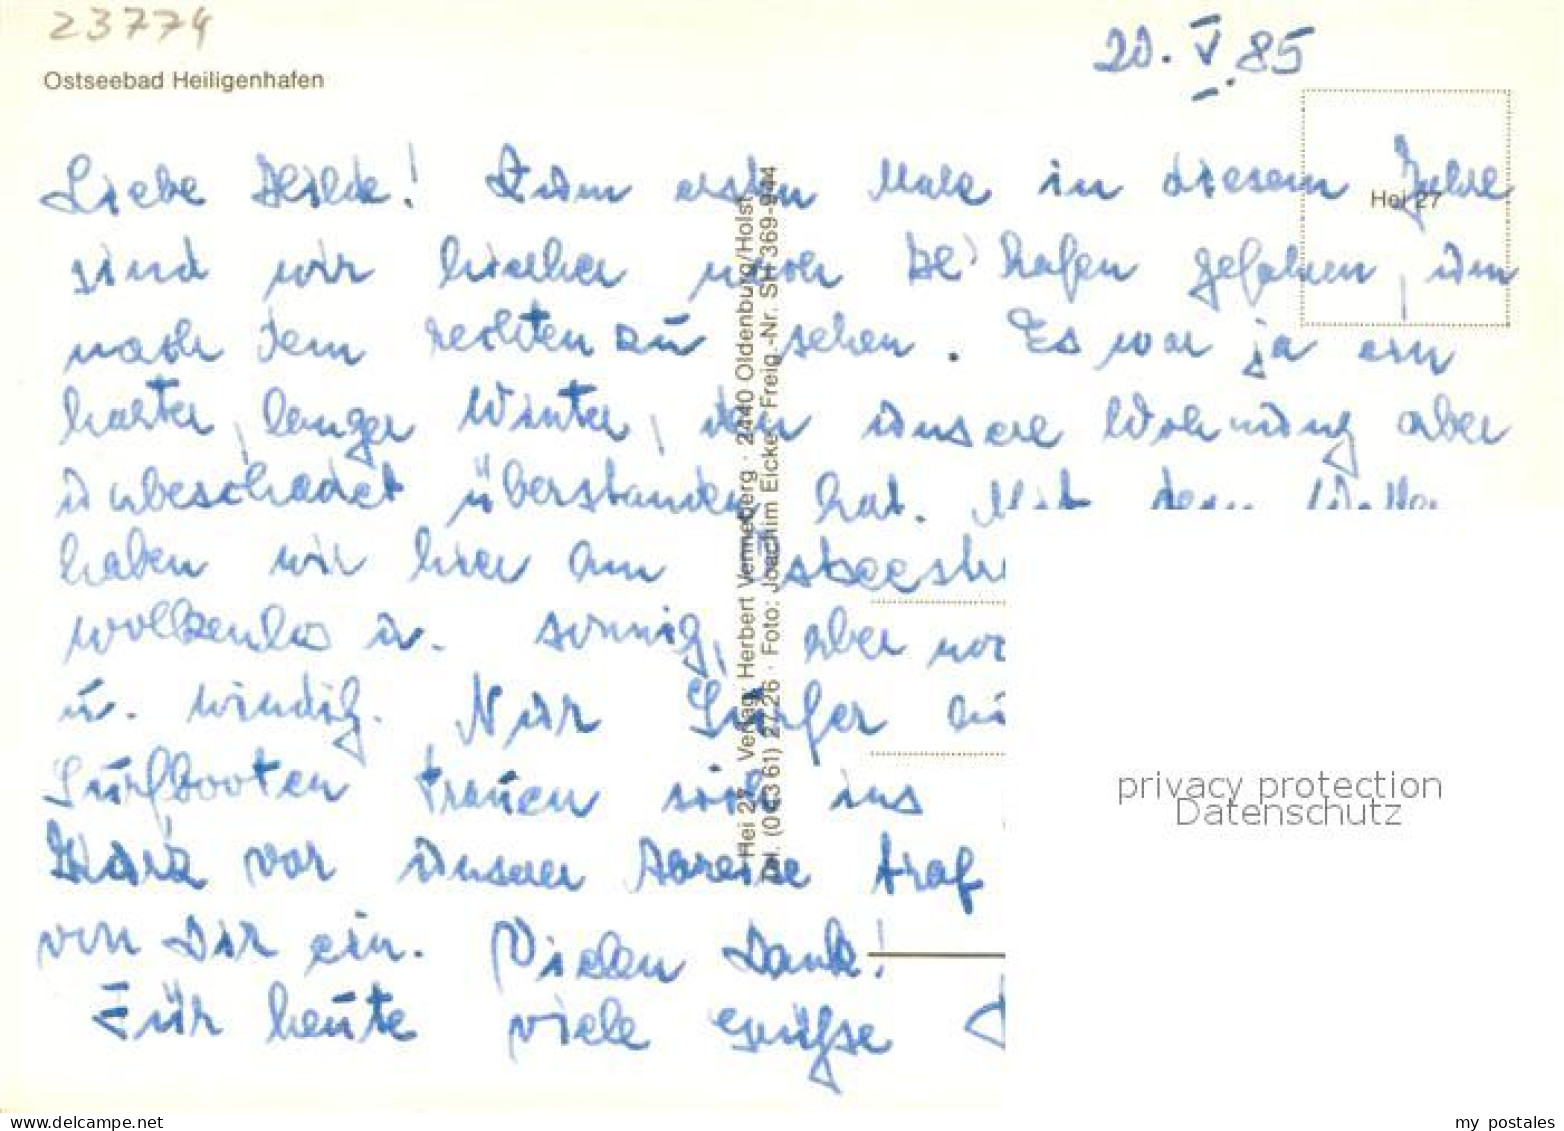 23774
Ostseebad Heiligenhafen
20. V. 85
Hei 27
Liebe Hilde! Zum ersten Male in diesem Jahre
sind wir hierher nach He'hafen gefahren, um
nach dem rechten zu sehen. Es war ja ein
harter, langer Winter, den unsere Wohnung aber
unbeschadet überstanden hat. Mit dem Wetter
haben wir hier am
wolkenlos u. sonnig, aber
u. windig. Nur Surfer
Surfbooten trauen sich ins
Kurz vor unserer Abreise traf
von Dir ein. Vielen Dank!
Für heute viele Grüße
Hei 27 Verlag: Herbert Venneberg · 2440 Oldenburg/Holst.
Tel. (0 43 61) 27 26 · Foto: Joachim Eicke · Freig.-Nr. SH 369-944
privacy protection
Datenschutz
my postales